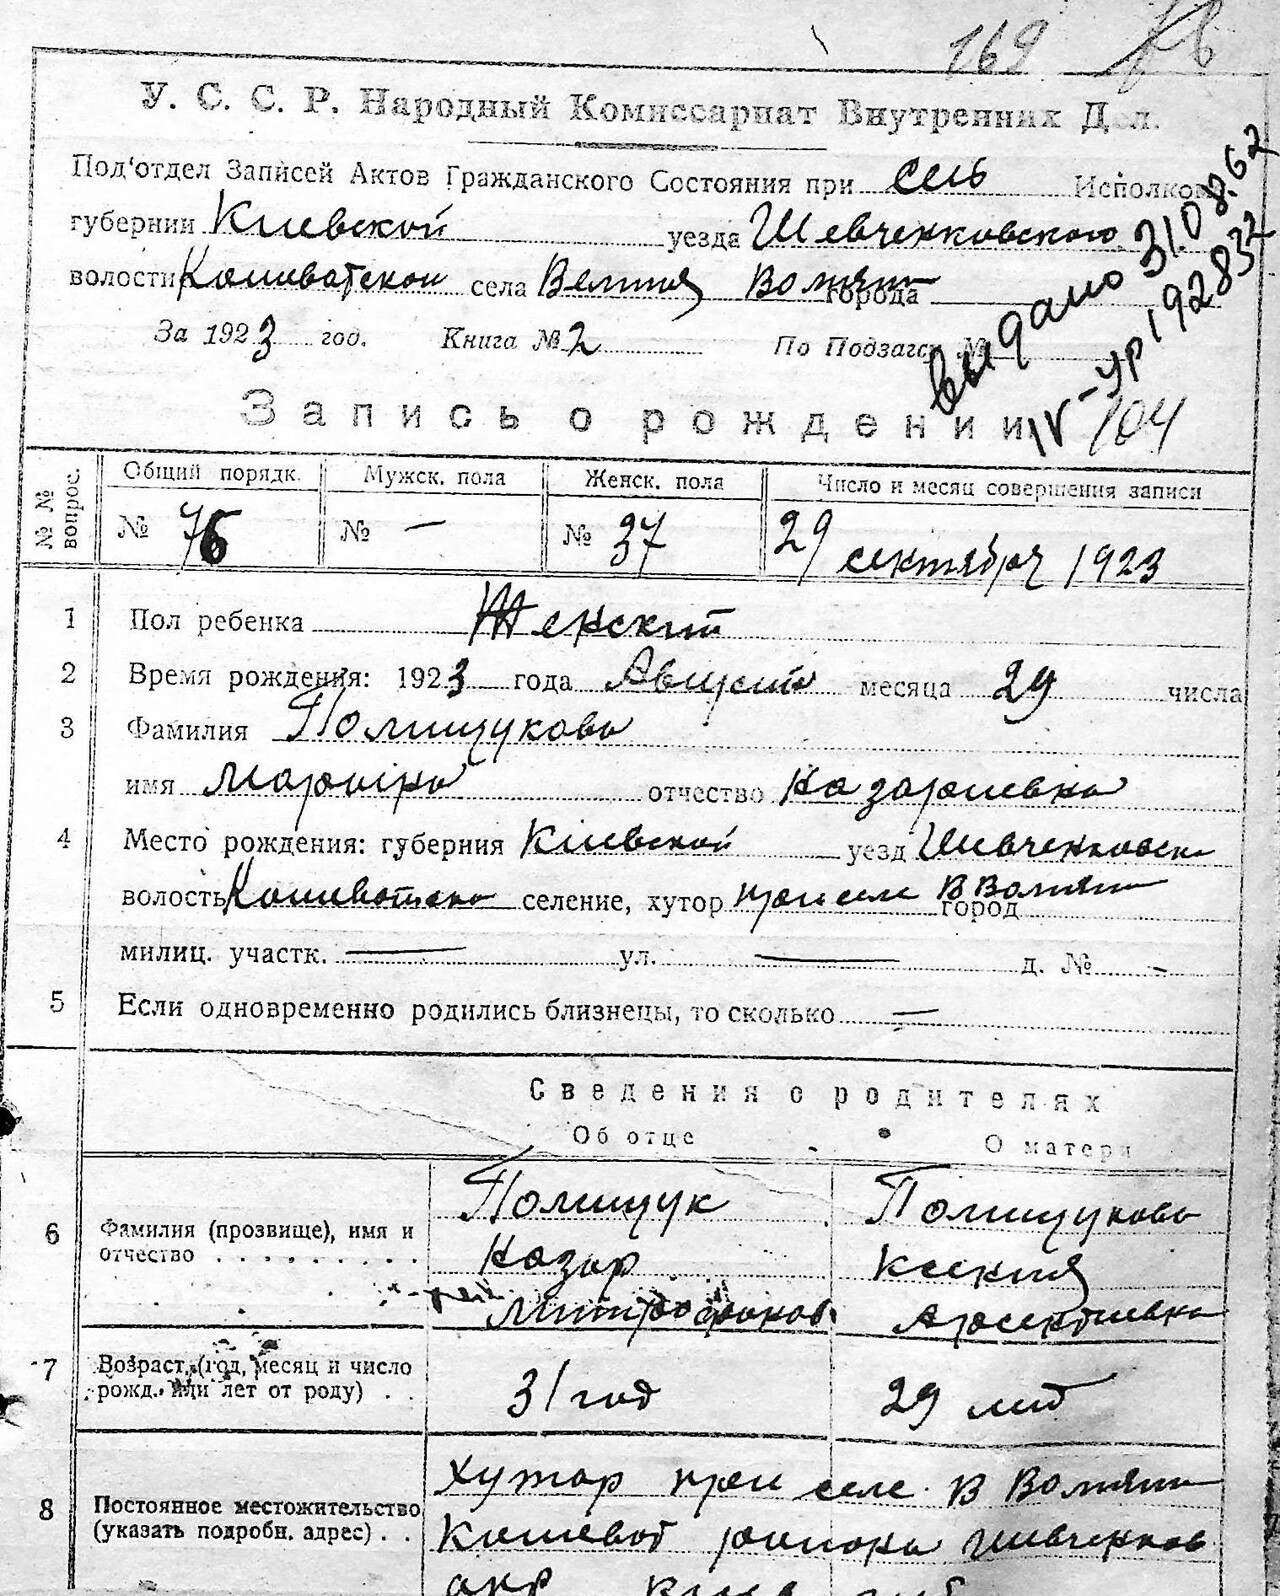 169
У. С. С. Р. Народный Комиссариат Внутренних Дел.
Под'отдел Записей Актов Гражданского Состояния при сель Исполком
губернии Киевской уезда Шевченковского
волости Кошеватской села Велика Вол города
выдано 31.08.62
IV-УР 192832
За 1923 год. Книга № 2 По Подзагс №
104
Запись о рождении
№ № вопрос. Общий порядк. Мужск. пола Женск. пола Число и месяц совершения записи
№ 76 № — № 37 29 сентября 1923
1 Пол ребенка Женский
2 Время рождения: 1923 года Август месяца 29 числа
3 Фамилия Полищукова
имя отчество Назариевна
4 Место рождения: губерния Киевской уезд Шевченковск
волость селение, хутор при селе В город
милиц. участк. — ул. — д. № -
5 Если одновременно родились близнецы, то сколько —
Сведения о родителях
Об отце О матери
6 Фамилия (прозвище), имя и отчество Полищук Полищукова
Назар Ксения
Митрофанов Арсентиевна
7 Возраст, (год, месяц и число рожд. или лет от роду) 31 год 29 лет
8 Постоянное местожительство (указать подробн. адрес) Хутор при селе В
района Шевченков
окр Киев губ